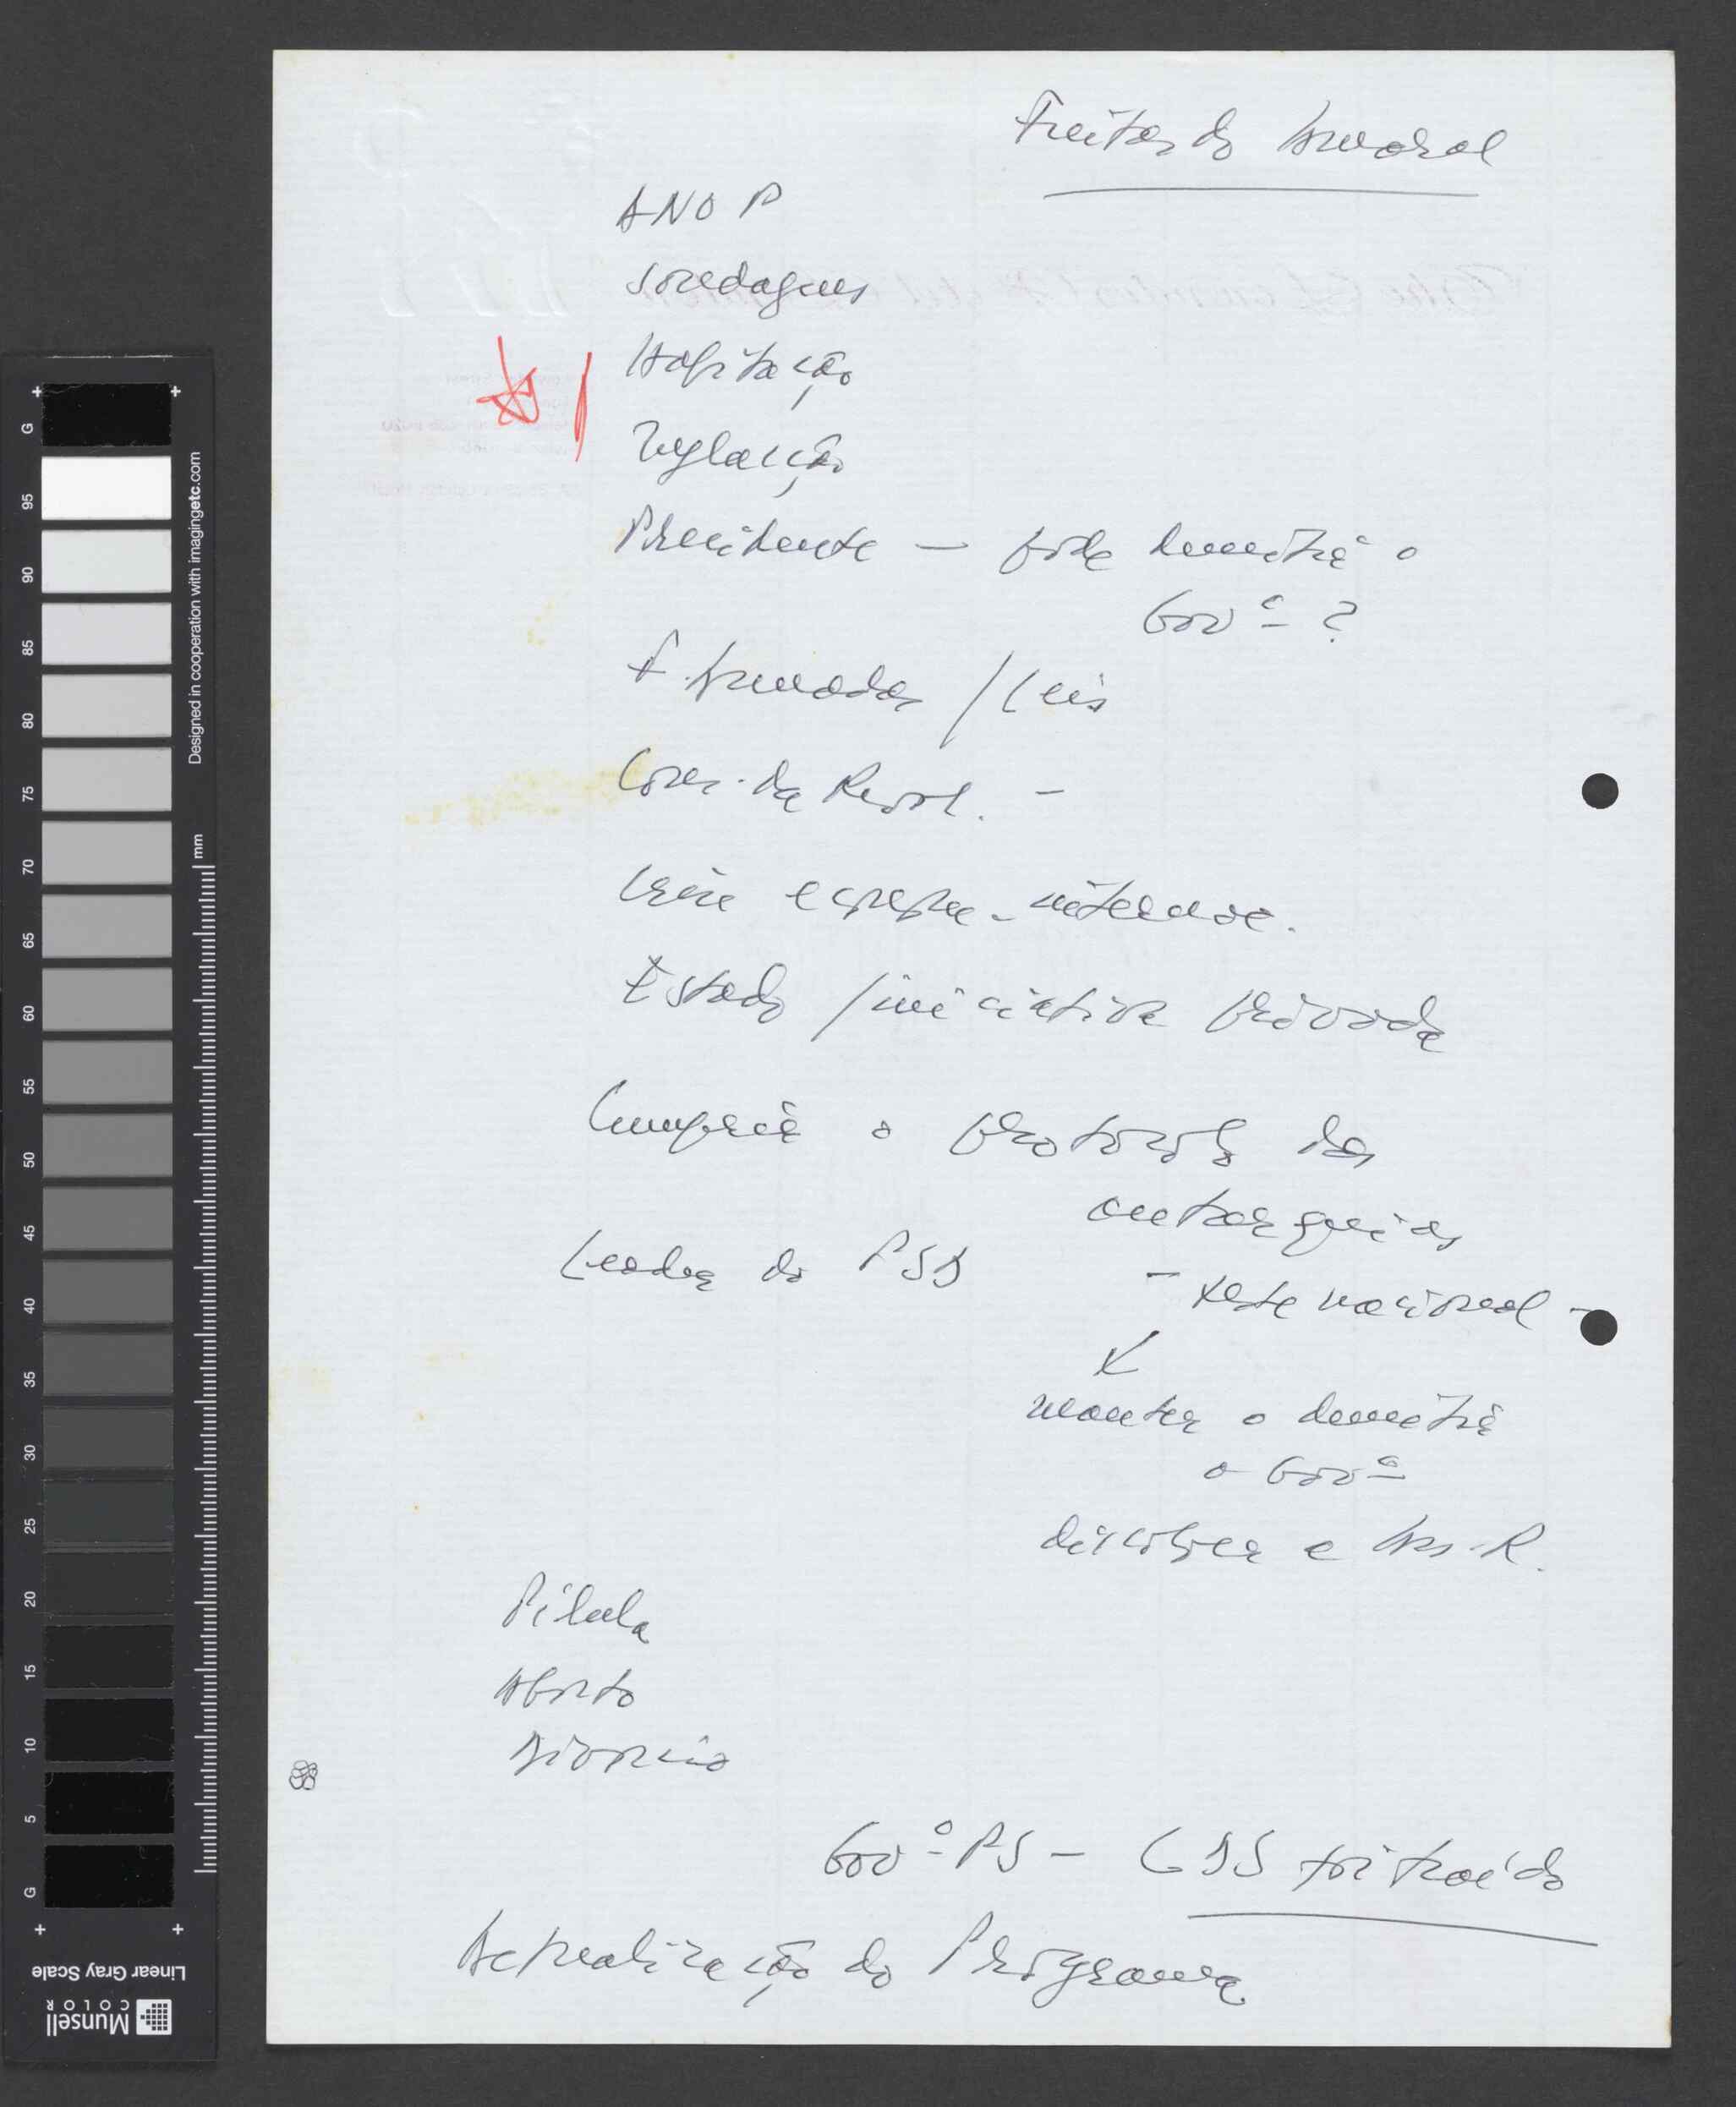 Freitas do Amaral
ANOP
Sondagens
Habitação
Inflacção
Presidente — pode demitir o
Govº ?
F. Armadas / Leis
Cons. da Revol. -
Crise econom. internac.
Estado / iniciativa privada
Cumprir o protocolo das
autarquias
Leader do PSD
- teste nacional -
manter o demitir
o Govº
dissolver a Ass. R.
Pilula
Aborto
Divorcio
Govº PS - CDS foi traído
Actualização do Programa
G 95 90 85 80 75 70 65 60 55 50 45 40 35 30 25 20 15 10 5 G
Designed in cooperation with imagingetc.com
mm
Linear Gray Scale
Munsell
COLOR